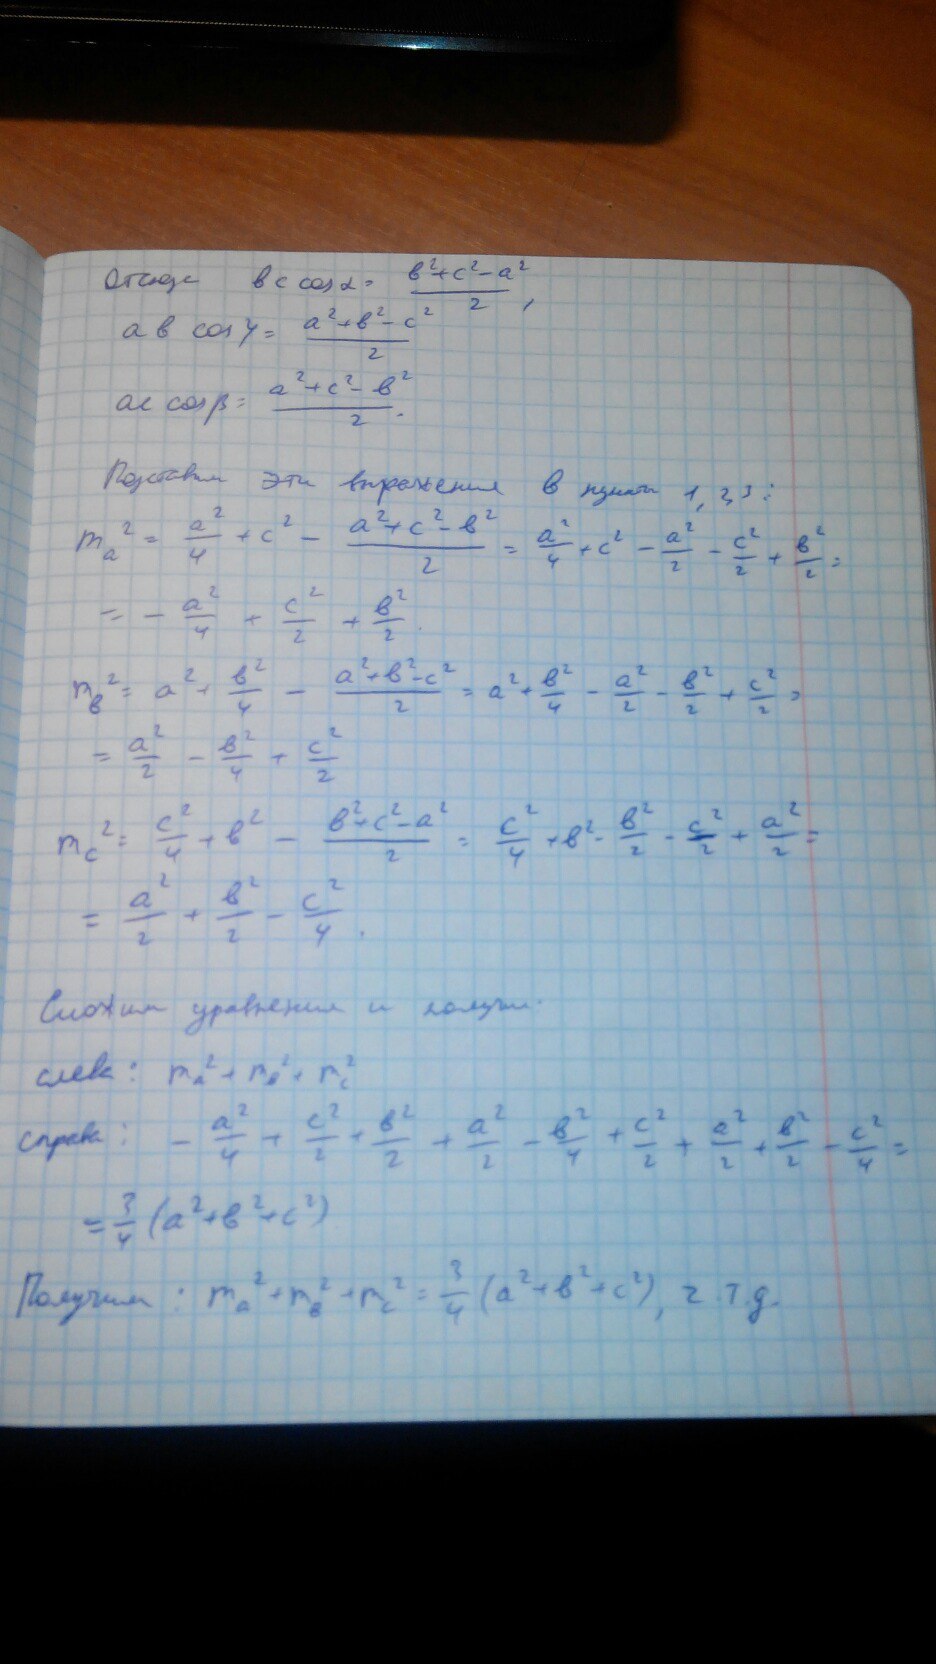 Отсюда вc cosα = (в²+c²-a²)/2,
aв cosγ = (a²+в²-c²)/2
ac cosβ = (a²+c²-в²)/2.
Подставим эти выражения в пункты 1, 2, 3:
mₐ² = a²/4 + c² - (a²+c²-в²)/2 = a²/4 + c² - a²/2 - c²/2 + в²/2 =
= - a²/4 + c²/2 + в²/2.
m_в² = a² + в²/4 - (a²+в²-c²)/2 = a² + в²/4 - a²/2 - в²/2 + c²/2 =
= a²/2 - в²/4 + c²/2
m_c² = c²/4 + в² - (в²+c²-a²)/2 = c²/4 + в² - в²/2 - c²/2 + a²/2 =
= a²/2 + в²/2 - c²/4.
Сложим уравнения и получим:
слева: mₐ² + m_в² + m_c²
справа: - a²/4 + c²/2 + в²/2 + a²/2 - в²/4 + c²/2 + a²/2 + в²/2 - c²/4 =
= 3/4 (a²+в²+c²)
Получим: mₐ² + m_в² + m_c² = 3/4 (a²+в²+c²), ч.т.д.